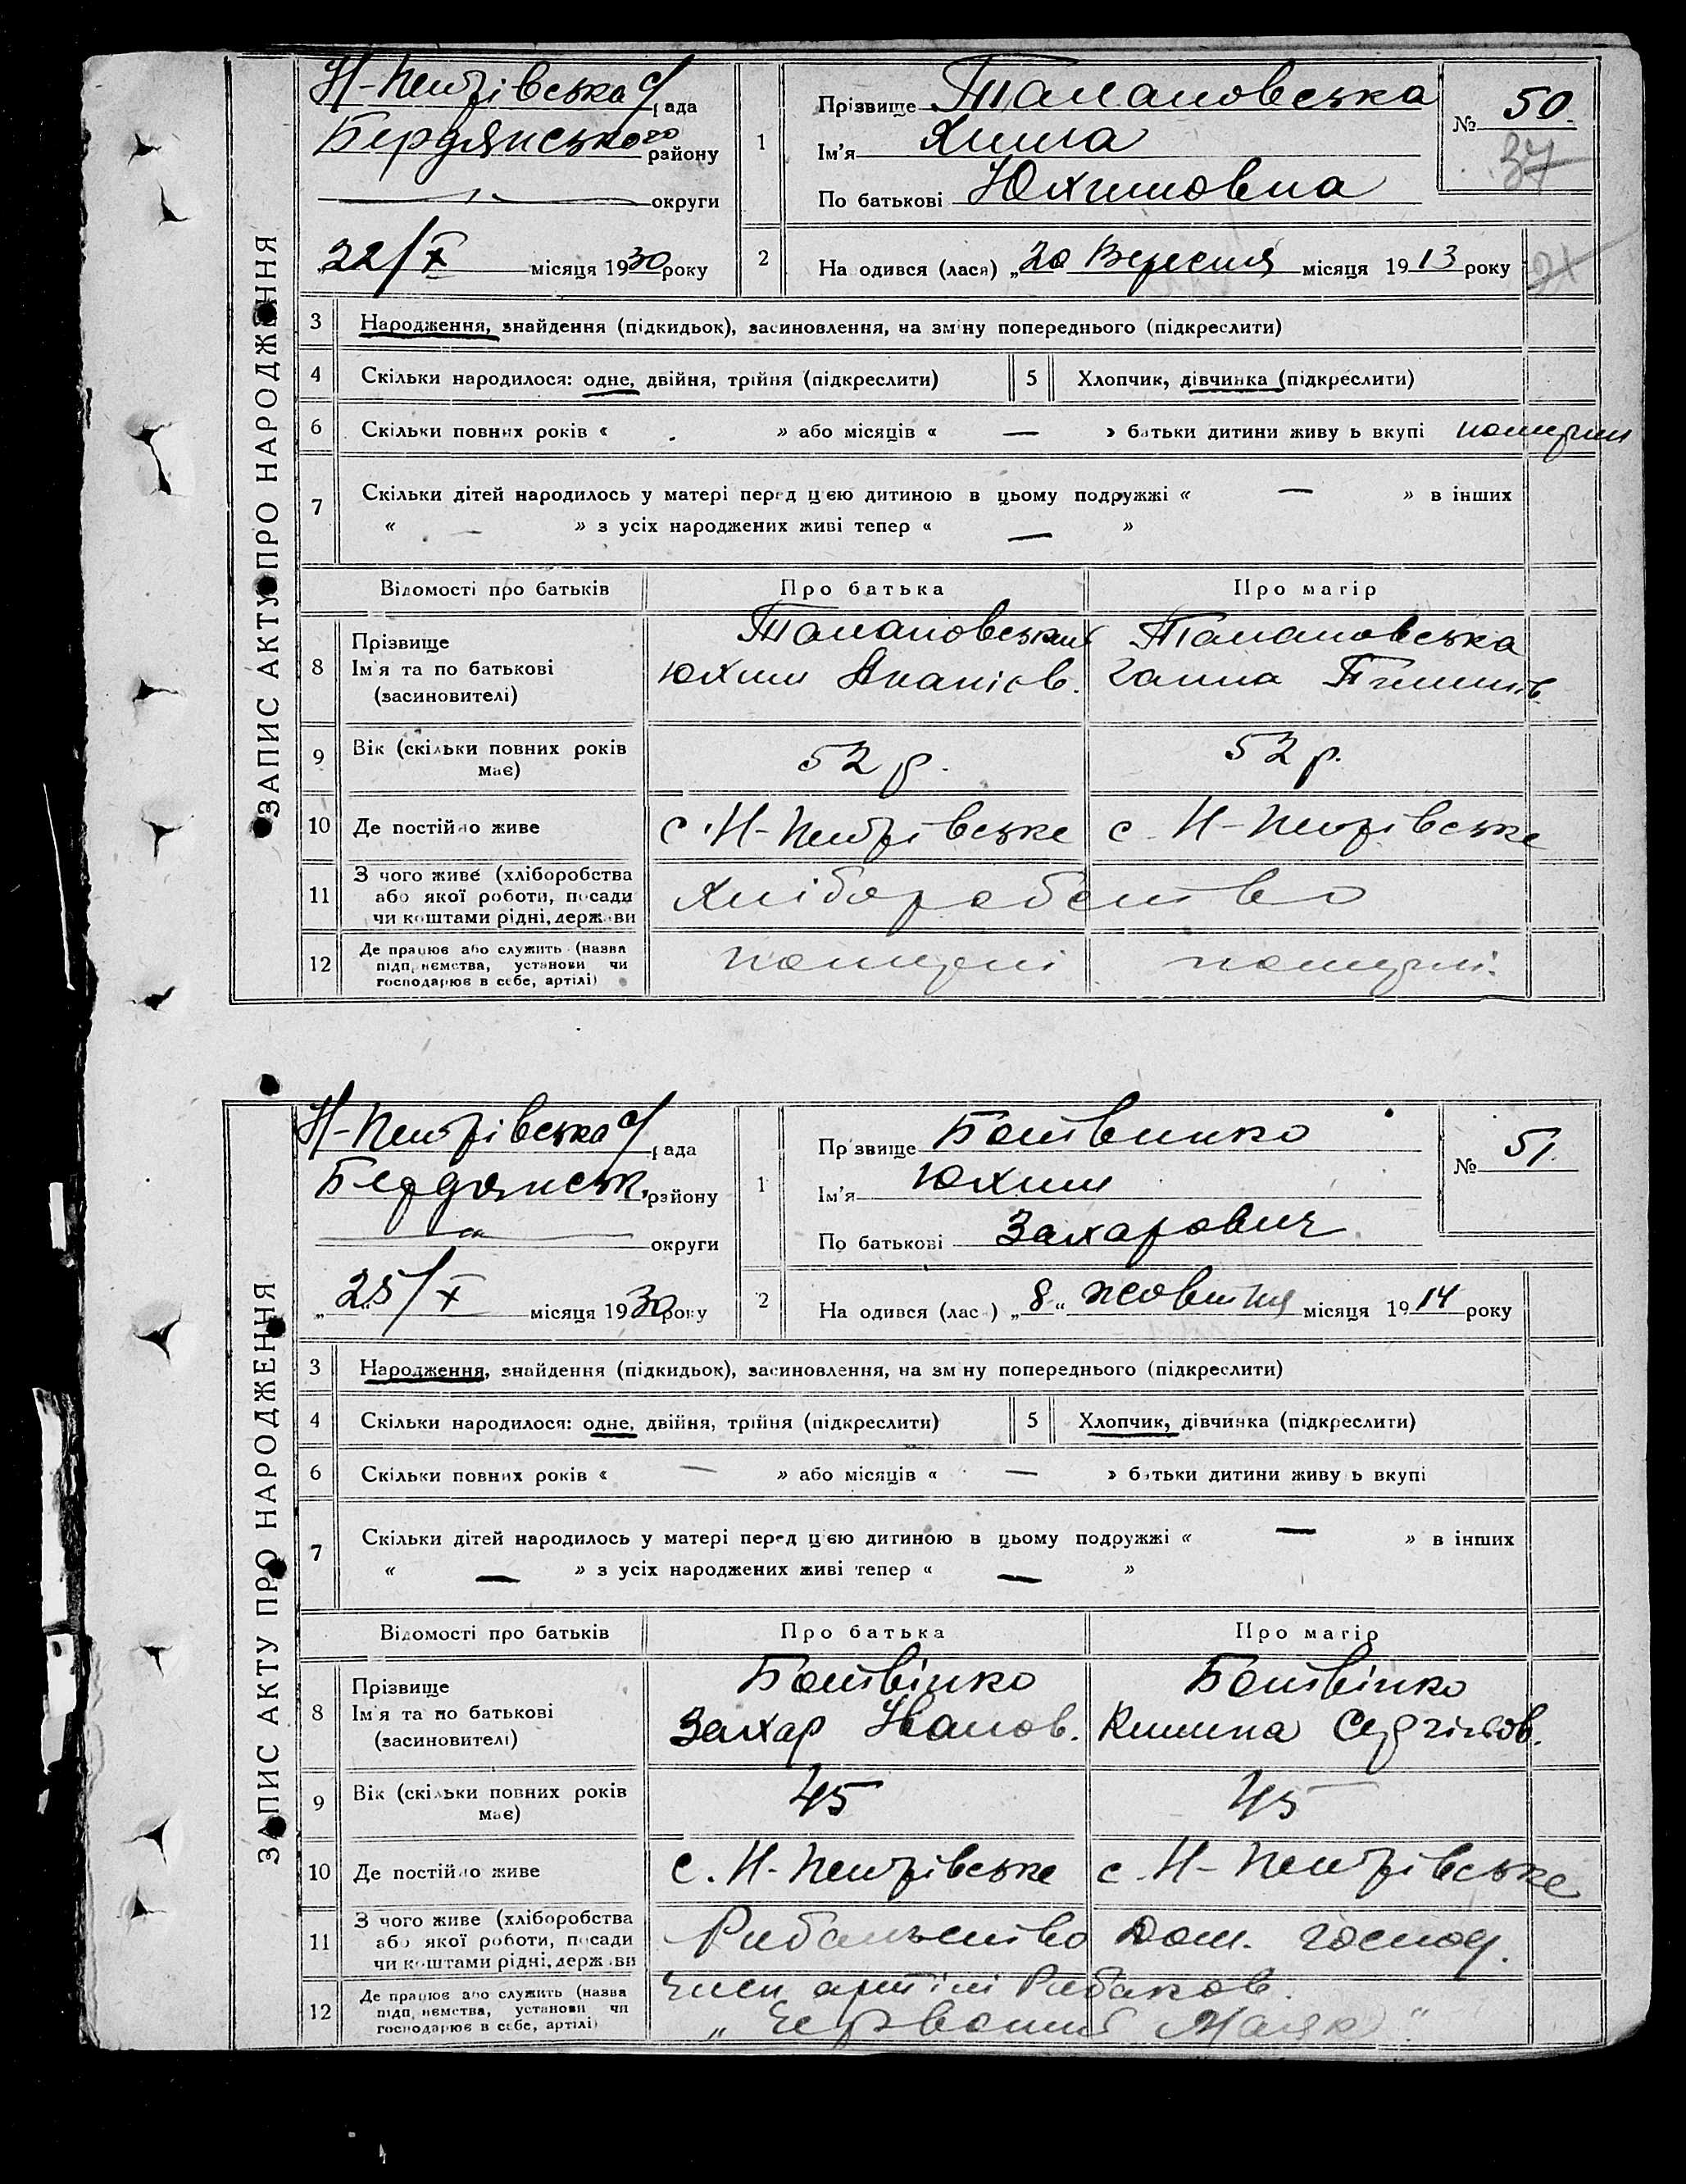 ЗАПИС АКТУ ПРО НАРОДЖЕННЯ
Н-Петрівська с/рада
Бердянського району
округи
22/X місяця 1930 року
1 Прізвище Талановська
Ім'я Химa
По батькові Юхимовна
№ 50.
37
2 На одився (лася) „20 Вересня місяця 1913 року
3 Народження, знайдення (підкидьок), засиновлення, на зміну попереднього (підкреслити)
4 Скільки народилося: одне, двійня, трійня (підкреслити) 5 Хлопчик, дівчинка (підкреслити)
6 Скільки повних років « » або місяців « — » батьки дитини живу ь вкупі померли
7 Скільки дітей народилось у матері перед цією дитиною в цьому подружжі « — » в інших
« — » з усіх народжених живі тепер « — »
Відомості про батьків Про батька Про матір
8 Прізвище Талановський Талановська
Ім'я та по батькові Юхим Ананіев. Ганна
(засиновителі)
9 Вік (скільки повних років має) 52 р. 52 р.
10 Де постійно живе с. Н-Петрівське с. Н-Петрівське
11 З чого живе (хліборобства
або якої роботи, посади Хліборобство
чи коштами рідні, держави
12 Де працює або служить (назва
підприємства, установи чи померлі померлі.
господарює в себе, артілі)
ЗАПИС АКТУ ПРО НАРОДЖЕННЯ
Н-Петрівська с/рада
Бердянськ. району
округи
„25/X місяця 1930 року
1 Пр звище Ботвинко
Ім'я Юхим
По батькові Захарович
№ 51.
2 На одився (лас ) „8“ жовтня місяця 1914 року
3 Народження, знайдення (підкидьок), засиновлення, на зм ну попереднього (підкреслити)
4 Скільки народилося: одне, двійня, трійня (підкреслити) 5 Хлопчик, дівчинка (підкреслити)
6 Скільки повних років « — » або місяців « — » батьки дитини живу ь вкупі
7 Скільки дітей народилось у матері перед цією дитиною в цьому подружжі « — » в інших
« — » з усіх народжених живі тепер « — »
Відомості про батьків Про батька Про матір
8 Прізвище Ботвінко Ботвінко
Ім'я та по батькові Захар Иванов. Килина Сергіїов.
(засиновителі)
9 Вік (скільки повних років має) 45 45
10 Де постійно живе с. Н-Петрівське с. Н-Петрівське
11 З чого живе (хліборобства
або якої роботи, посади Рибальство Дом. господ.
чи коштами рідні, держави
12 Де працює або служить (назва Член артілі Рибаков.
підприємства, установи чи „Червоний Маяк“
господарює в себе, артілі)